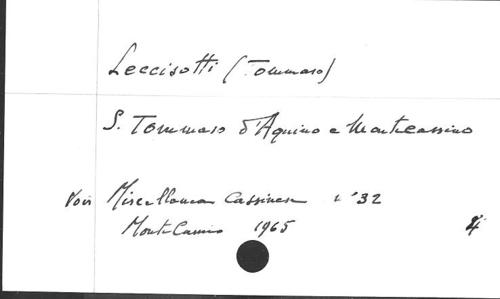 Leccisotti (Tommaso)
S. Tommaso d'Aquino e Montecassino
Voir Miscellanea Cassinese n° 32
MonteCassino 1965